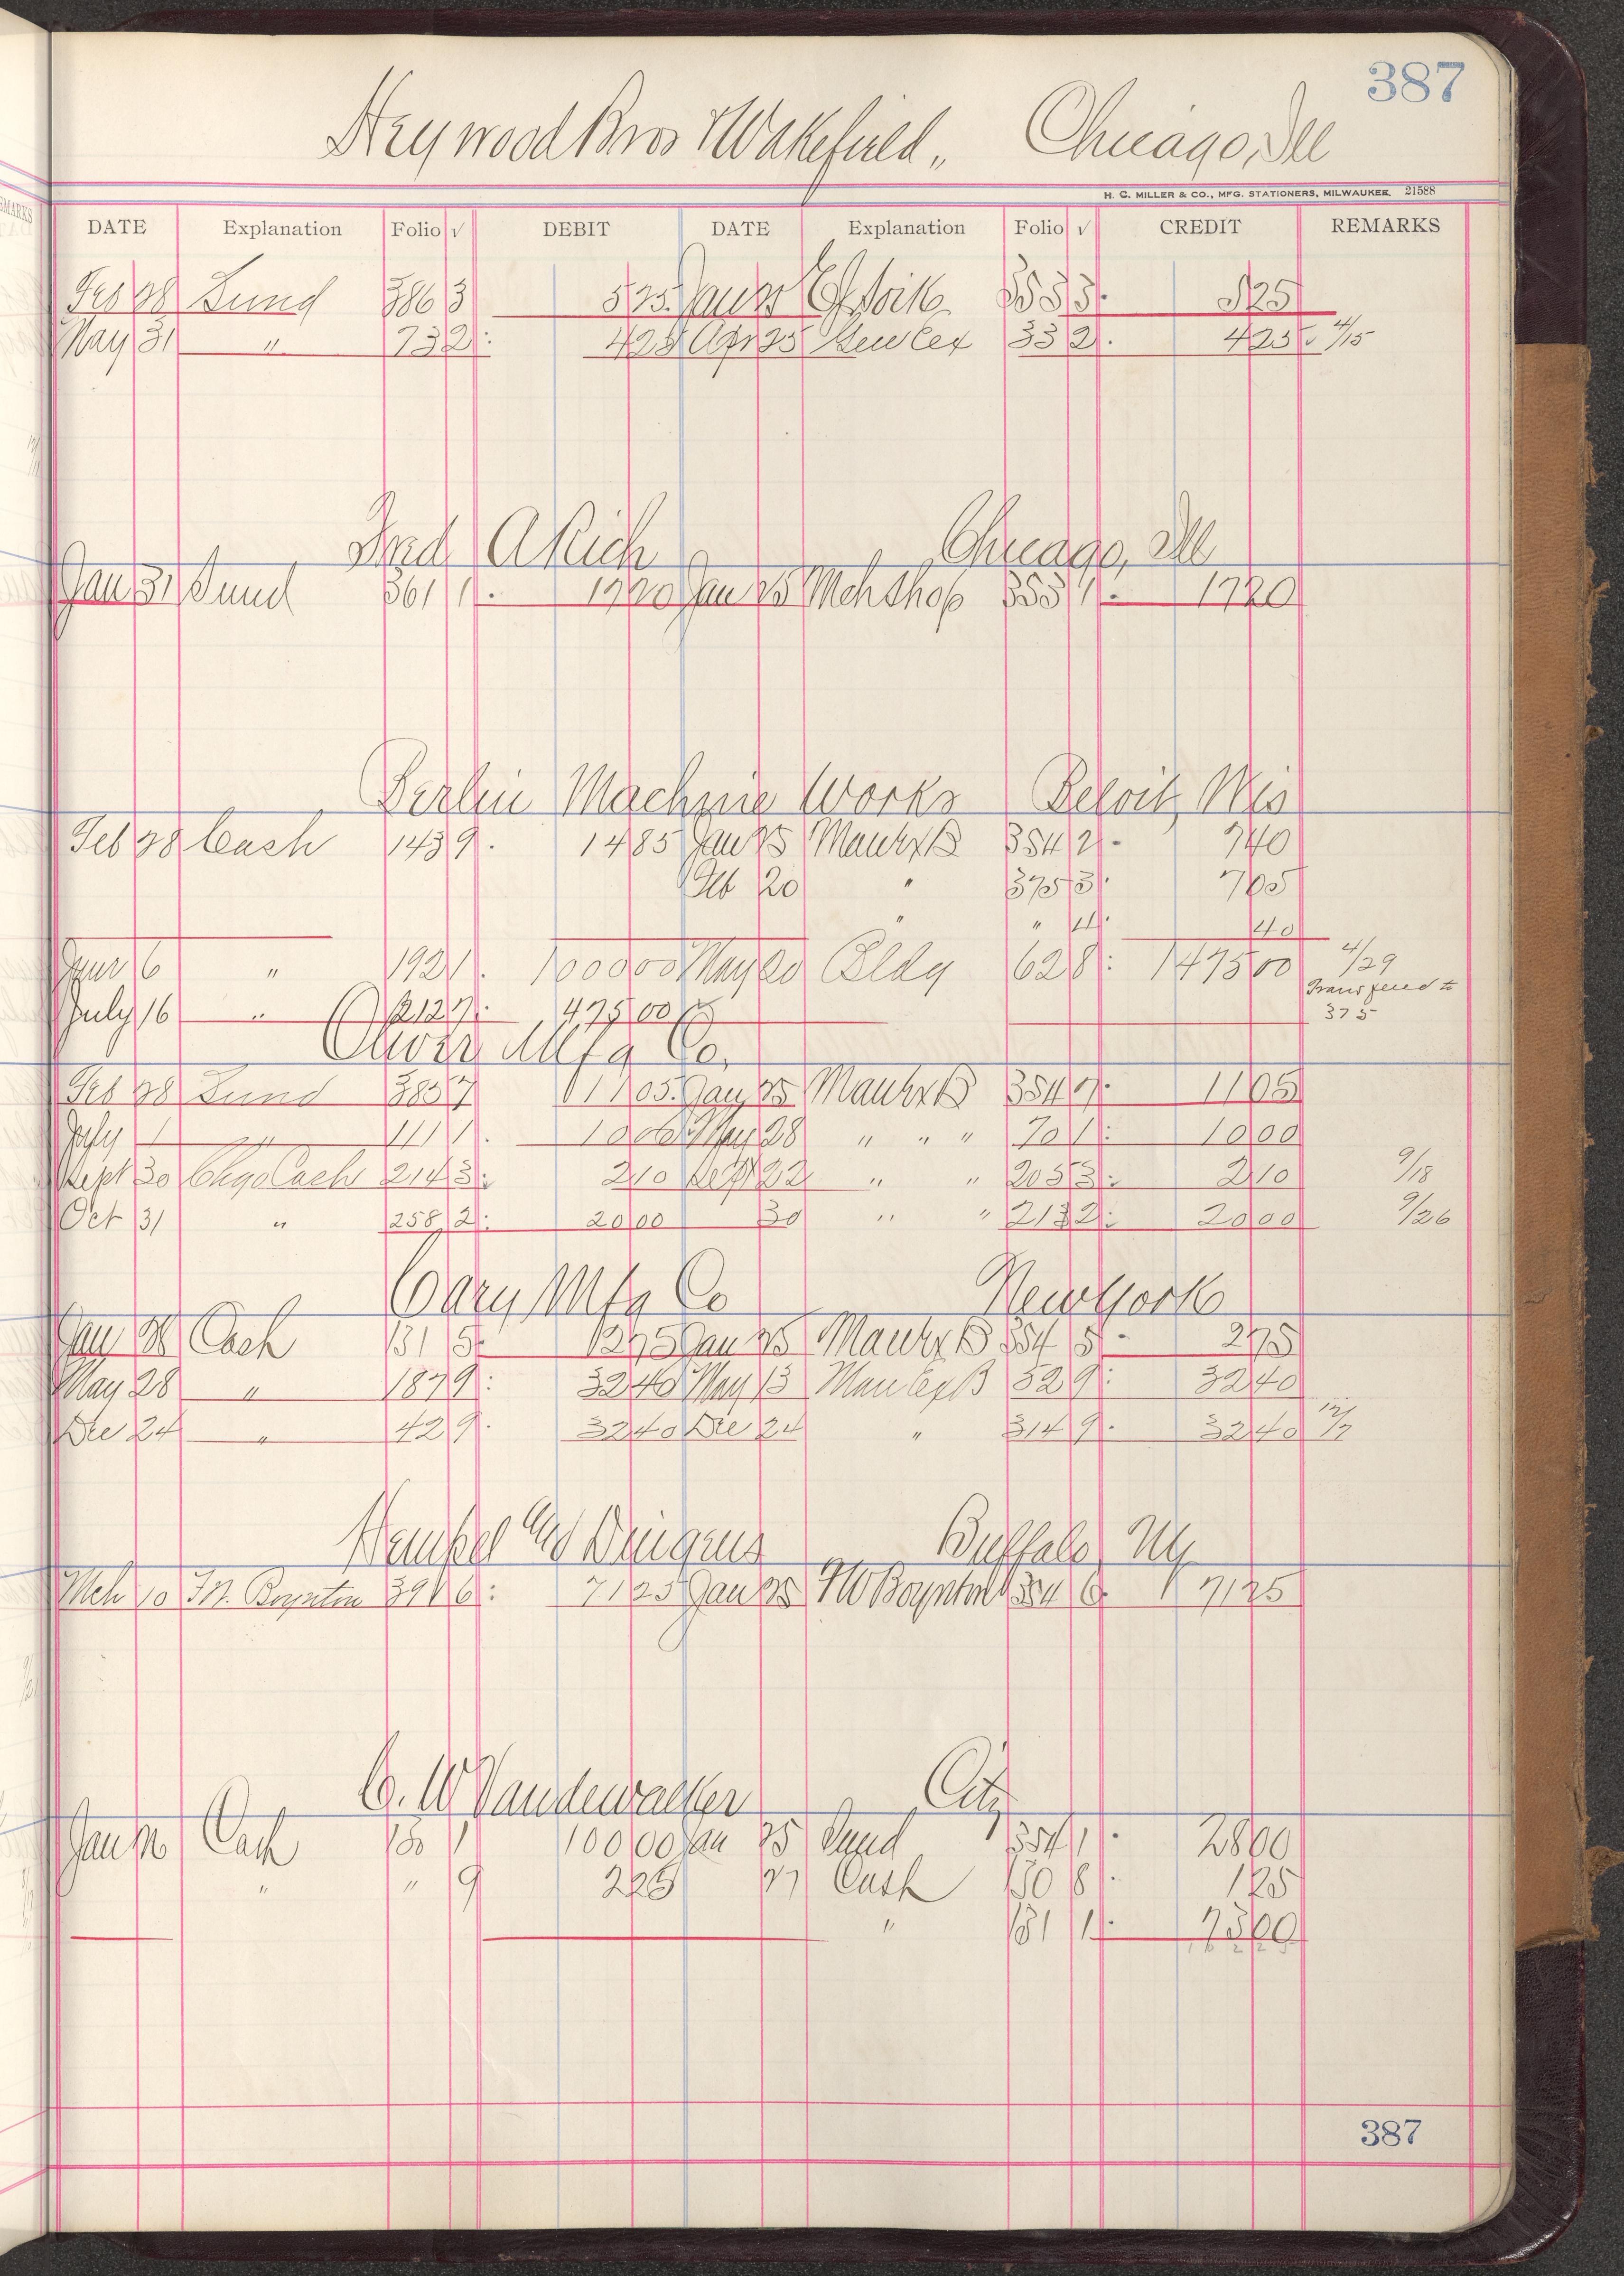 387
Heywood Bros & Wakefield,, Chicago, Ill
H. C. MILLER & CO., MFG. STATIONERS, MILWAUKEE. 21588
DATE Explanation Folio √ DEBIT DATE Explanation Folio √ CREDIT REMARKS
Feb 28 Sund 386 3 525 Jan 25 353 3 525
May 31 " 73 2 425 Apr 25 Gen Ex 33 2 425 4/15
Fred A Rich Chicago, Ill
Jan 31 Sund 361 1 1720 Jan 25 Mch Shop 353 1720
Berlin Machine Works Beloit, Wis
Feb 28 Cash 143 9 1485 Jan 25 Manfx B 354 2 740
Feb 20 " 375 3 705
" " 4 40
June 6 " 192 1 100000 May 20 Bldg 62 8 147500 4/29
Transfered to
July 16 " 212 7 47500 375
Oliver Mfg Co.
Feb 28 Sund 385 7 1105 Jan 25 Manfx B 354 7 1105
July 1 " 111 1 1000 May 28 " " " 70 1 1000
Sept 30 Chgo Cash 214 3 210 Sept 22 " " 205 3 210 9/18
Oct 31 " 258 2 2000 30 " " 213 2 2000 9/26
Cary Mfg Co New York
Jan 28 Cash 131 5 275 Jan 25 Manfx B 354 5 275
May 28 " 187 9 3240 May 13 Man Ex B 52 9 3240
Dec 24 " 42 9 3240 Dec 24 " 314 9 3240 12/7
Buffalo, Ny
Mch 10 Boynton 391 6 7125 Jan 25 Boynton 354 6 7125
C. W Vandewalker City
Jan 26 Cash 130 1 10000 Jan 25 Sund 354 1 2800
" " 9 225 27 Cash 130 8 125
" 131 1 7300
387